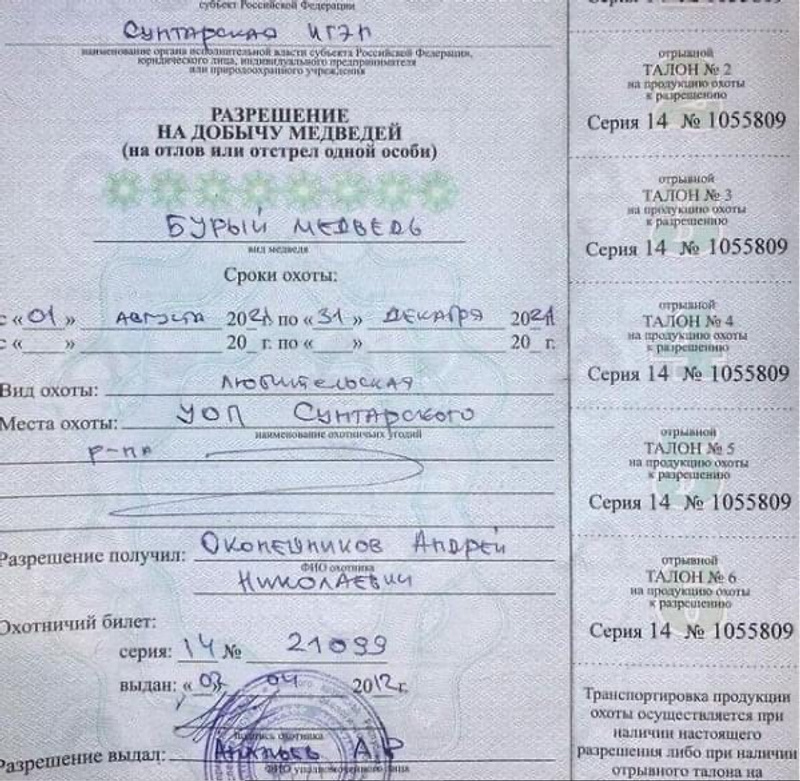 субъект Российской Федерации
Сунтарская ИГЭП
наименование органа исполнительной власти субъекта Российской Федерации,
юридического лица, индивидуального предпринимателя
или природоохранного учреждения
РАЗРЕШЕНИЕ
НА ДОБЫЧУ МЕДВЕДЕЙ
(на отлов или отстрел одной особи)
БУРЫЙ МЕДВЕДЬ
вид медведя
Сроки охоты:
с «01» августа 2021 по «31» ДЕКАБРЯ 2021
с « » 20 г. по « » 20 г.
Вид охоты: любительская
Места охоты: УОП Сунтарского
наименование охотничьих угодий
р-на
Разрешение получил: Окопешников Андрей
ФИО охотника
Николаевич
Охотничий билет:
серия: 14 № 21099
выдан: «03» 04 2012 г.
подпись охотника
Разрешение выдал: Ананьев А Р
ФИО уполномоченного лица
отрывной
ТАЛОН № 2
на продукцию охоты
к разрешению
Серия 14 № 1055809
отрывной
ТАЛОН № 3
на продукцию охоты
к разрешению
Серия 14 № 1055809
отрывной
ТАЛОН № 4
на продукцию охоты
к разрешению
Серия 14 № 1055809
отрывной
ТАЛОН № 5
на продукцию охоты
к разрешению
Серия 14 № 1055809
отрывной
ТАЛОН № 6
на продукцию охоты
к разрешению
Серия 14 № 1055809
Транспортировка продукции
охоты осуществляется при
наличии настоящего
разрешения либо при наличии
отрывного талона на